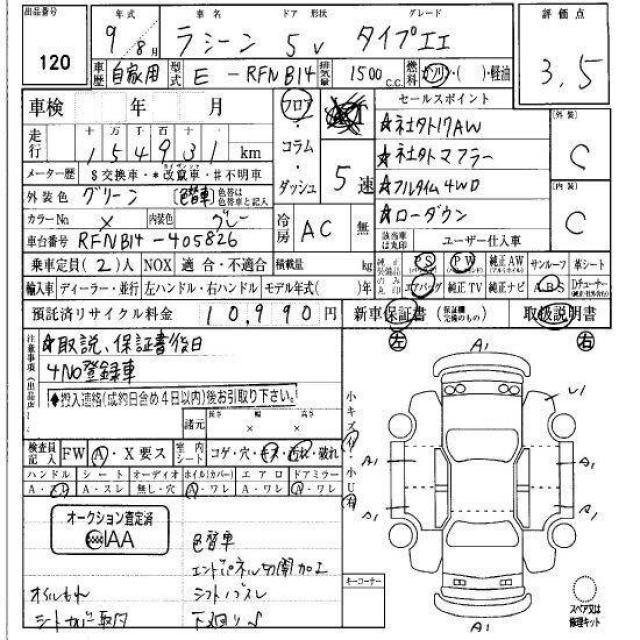 出品番号
120
年式
9年8月
車名 ドア 形状
ラシーン 5V
グレード
タイプII
評価点
3.5
車歴 自家用
型式 E - RFNB14
排気量 1500 C.C.
燃料 ガソリン・( )・軽油
車検 年 月
走行 十 万 千 百 十 一
154931 km
メーター歴 $交換車・*改竄車・#不明車
外装色 グリーン 色替車 色替は色替車と記入
カラーNo × 内装色 グレー
車台番号 RFNB14-405826
フロア・コラム・ダッシュ
AT
5速
冷房 AC 無
セールスポイント
☆社外17AW
☆社外マフラー
☆フルタイム4WD
☆ローダウン
外装 C
内装 C
該当車は丸印 ユーザー仕入車
乗車定員(2)人 NOX 適合・不適合 積載量 kg
純正装備品のみ丸印
PS PW 純正AW サンルーフ 革シート
エアバッグ 純正TV 純正ナビ ABS Dチューナー
輸入車 ディーラー・並行 左ハンドル・右ハンドル モデル年式( )年
預託済リサイクル料金 10,990円
新車保証書 取扱説明書
注意事項
☆取説、保証書後日
4NO登録車
◆搬入連絡(成約日含め4日以内)後お引取り下さい。
諸元 長さ 幅 高さ
× ×
検査員記入 FW A・X要ス 室内シート コゲ・穴・キズ・汚れ・破れ
ハンドル シート オーディオ ホイル(カバー) エアロ ドアミラー
A・スレ A・スレ 無し・穴 A・ワレ A・ワレ A・ワレ
オークション査定済
IAA
色替車
エンドパネル切開加工
オイルもれ シフトブスレ
シートカバー取付 下廻りサ
小キズ有・小U有
キーコーナー
左 右
A1
U1
A1
A1
A1
A1
A1
スペア又は修理キット